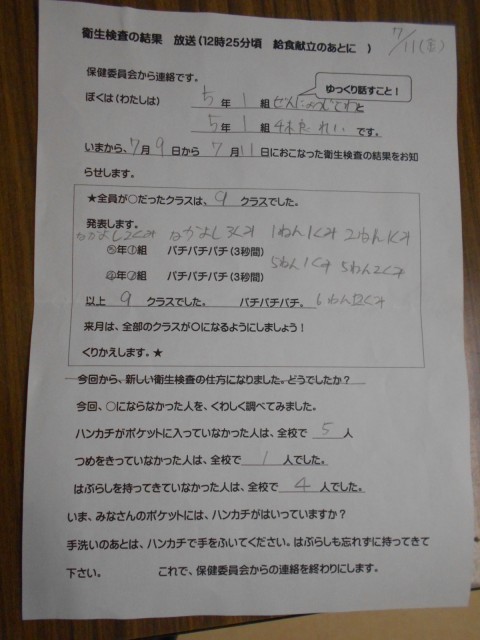 衛生検査の結果　放送（12時25分頃　給食献立のあとに　）
7/11（金）
保健委員会から連絡です。
ゆっくり話すこと！
ぼくは（わたしは）　5年　1組　と
5年　1組　です。
いまから、7月9日から　7月11日におこなった衛生検査の結果をお知
らせします。
★全員が○だったクラスは、9　クラスでした。
発表します。
なかよし2くみ　なかよし3くみ　1ねん1くみ　2ねん1くみ
⑤年①組　パチパチパチ（3秒間）
5ねん1くみ　5ねん2くみ
④年②組　パチパチパチ（3秒間）
以上　9　クラスでした。　パチパチパチ。　6ねん2くみ
来月は、全部のクラスが○になるようにしましょう！
くりかえします。★
今回から、新しい衛生検査の仕方になりました。どうでしたか？
今回、○にならなかった人を、くわしく調べてみました。
ハンカチがポケットに入っていなかった人は、全校で　5　人
つめをきっていなかった人は、全校で　1　人でした。
はぶらしを持ってきていなかった人は、全校で　4　人でした。
いま、みなさんのポケットには、ハンカチがはいっていますか？
手洗いのあとは、ハンカチで手をふいてください。はぶらしも忘れずに持ってきて
下さい。　これで、保健委員会からの連絡を終わりにします。